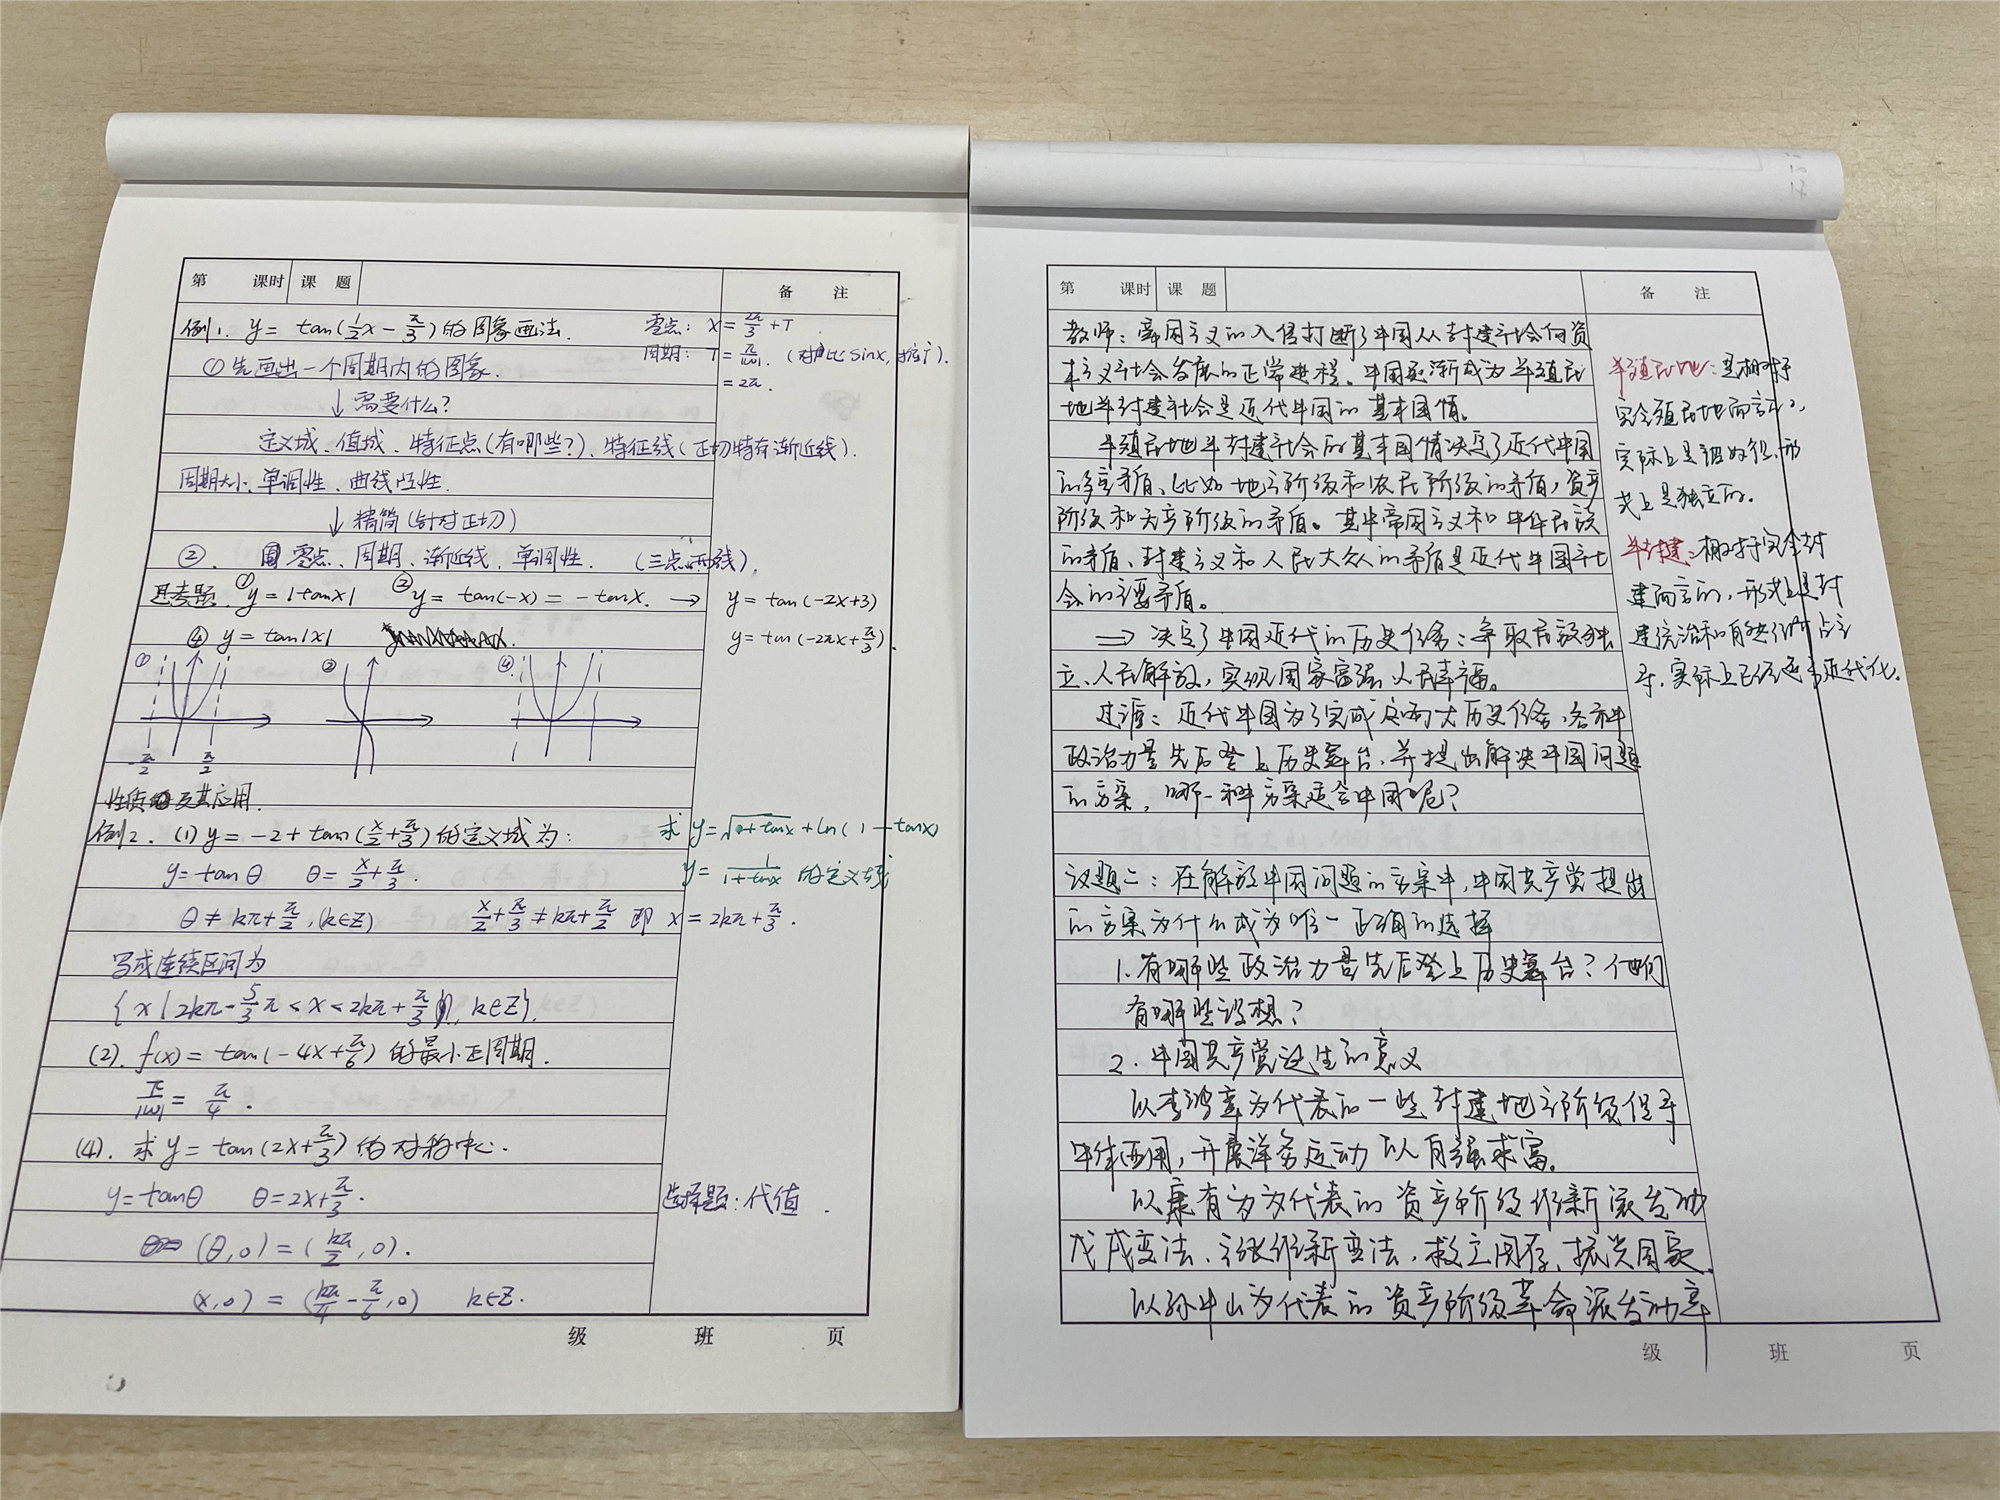 第 课时 课 题 备 注
例1. y = tan(½x − π/3)的图象画法. 零点: x = 2π/3 + T
① 先画出一个周期内的图象. 周期: T = π/|ω|. (对比 sinx,
= 2π.
↓ 需要什么?
定义域、值域、特征点(有哪些?)、特征线(正切特有渐近线).
周期大小、单调性、曲线凹凸性.
↓ 精简(针对正切)
②. 零点、周期、渐近线、单调性. (三点两线).
思考题. ① y = |tanx| ② y = tan(-x) = -tanx. → y = tan(-2x+3)
④ y = tan|x| y = tan(-2πx + π/3).
① ② ④
-π/2 π/2
性质及其应用.
例2. (1) y = -2 + tan(x/2 + π/3)的定义域为: 求 y = √(a+tanx) + ln(1-tanx)
y = tanθ θ = x/2 + π/3. y = 1/(1+tanx) 的定义域
θ ≠ kπ + π/2, (k∈Z) x/2 + π/3 ≠ kπ + π/2 即 x = 2kπ + π/3.
写成连续区间为
{x | 2kπ - 5/3π < x < 2kπ + π/3, k∈Z}.
(2). f(x) = tan(-4x + π/6)的最小正周期.
π/|ω| = π/4.
(4). 求 y = tan(2x + π/3)的对称中心.
y = tanθ θ = 2x + π/3. 选择题: 代值.
(θ, 0) = (kπ/2, 0).
(x, 0) = (kπ/4 - π/6, 0) k∈Z.
级 班 页
第 课时 课 题 备 注
教师: 帝国主义的入侵打断了中国从封建社会向资
本主义社会发展的正常进程。中国逐渐成为半殖民
地半封建社会是近代中国的基本国情。
半殖民地半封建社会的基本国情决定了近代中国
的主要矛盾、比如地主阶级和农民阶级的矛盾, 资产
阶级和无产阶级的矛盾。其中帝国主义和中华民族
的矛盾、封建主义和人民大众的矛盾是近代中国社
会的主要矛盾。
⇒ 决定了中国近代的历史任务: 争取民族独
立、人民解放, 实现国家富强、人民幸福。
过渡: 近代中国为了完成这两大历史任务, 各种
政治力量先后登上历史舞台, 并提出解决中国问题
的方案, 哪一种方案适合中国呢?
议题二: 在解放中国问题的方案中, 中国共产党提出
的方案为什么成为唯一正确的选择
1. 有哪些政治力量先后登上历史舞台? 他们
有哪些设想?
2. 中国共产党诞生的意义
以李鸿章为代表的一些封建地主阶级倡导
中体西用, 开展洋务运动以自强求富。
以康有为为代表的资产阶级维新派发动
戊戌变法、主张维新变法, 救亡图存、振兴国家.
以孙中山为代表的资产阶级革命派发动辛
半殖民地: 是相对于
完全殖民地而言的,
实际上是被奴役, 形
式上是独立的。
半封建: 相对于完全封
建而言的, 形式上是封
建统治和自然经济占主
导, 实际上已经近代化.
级 班 页